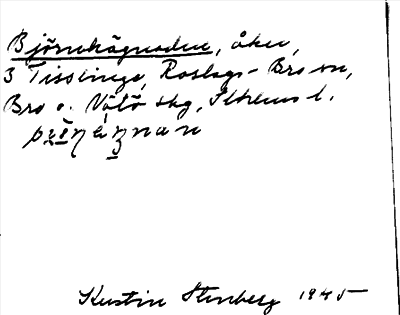 Björnhägnaden, åker,
3 Tisslinge, Roslags-Bro sn,
Bro o. Vätö skg, Sthlms l.
Kerstin Stenberg 1945